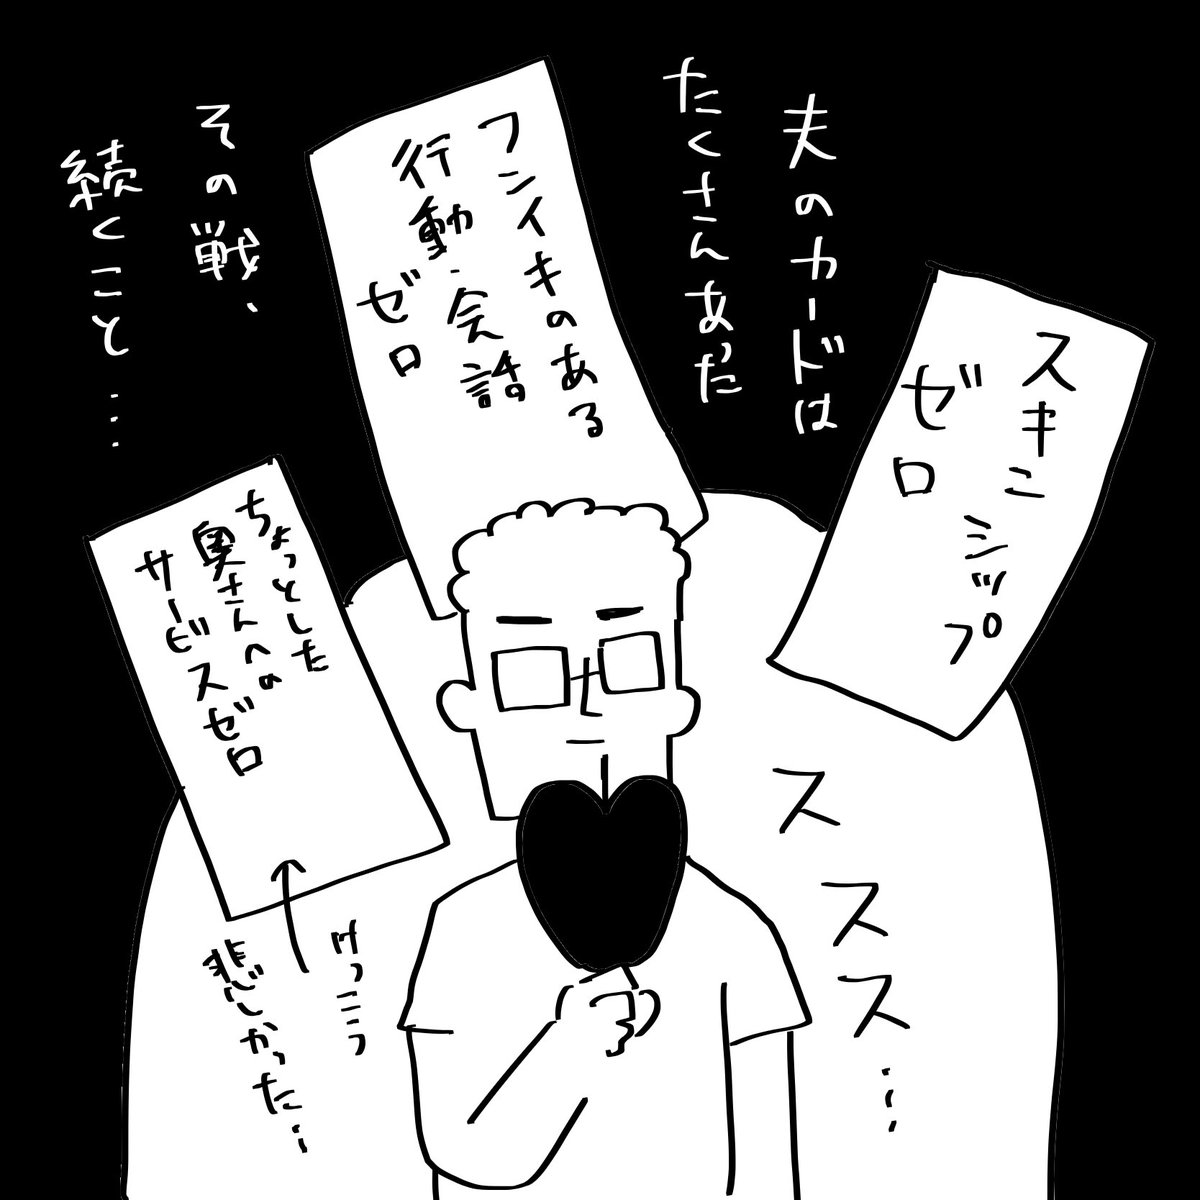 夫のカードは
たくさんあった
スキンシップ
ゼロ
フンイキのある
行動・会話
ゼロ
その戦、
続くこと…
ちょっとした
奥さんへの
サービスゼロ
ススス…
けっこう
悲しかった…